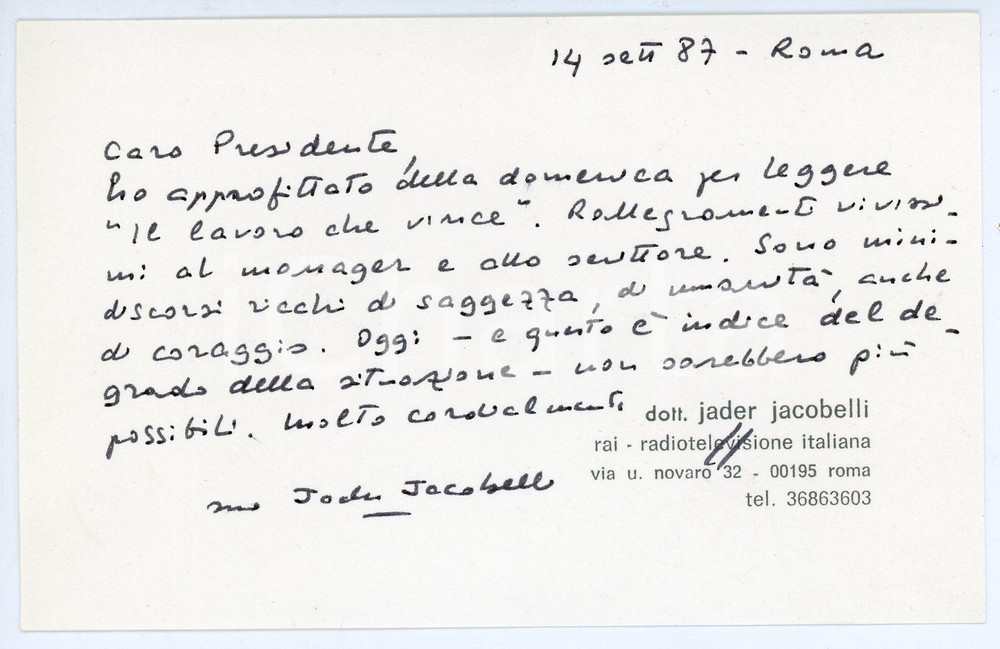 14 sett 87 - Roma
Caro Presidente,
ho approfittato della domenica per leggere
"Il lavoro che vince". Rallegramenti vivissi-
mi al manager e allo scrittore. Sono mini-
discorsi ricchi di saggezza, di umanità, anche
di coraggio. Oggi - e questo è indice del de-
grado della situazione - non sarebbero più
possibili. Molto cordialmente
suo Jader Jacobelli
dott. jader jacobelli
rai - radiotelevisione italiana
via u. novaro 32 - 00195 roma
tel. 36863603